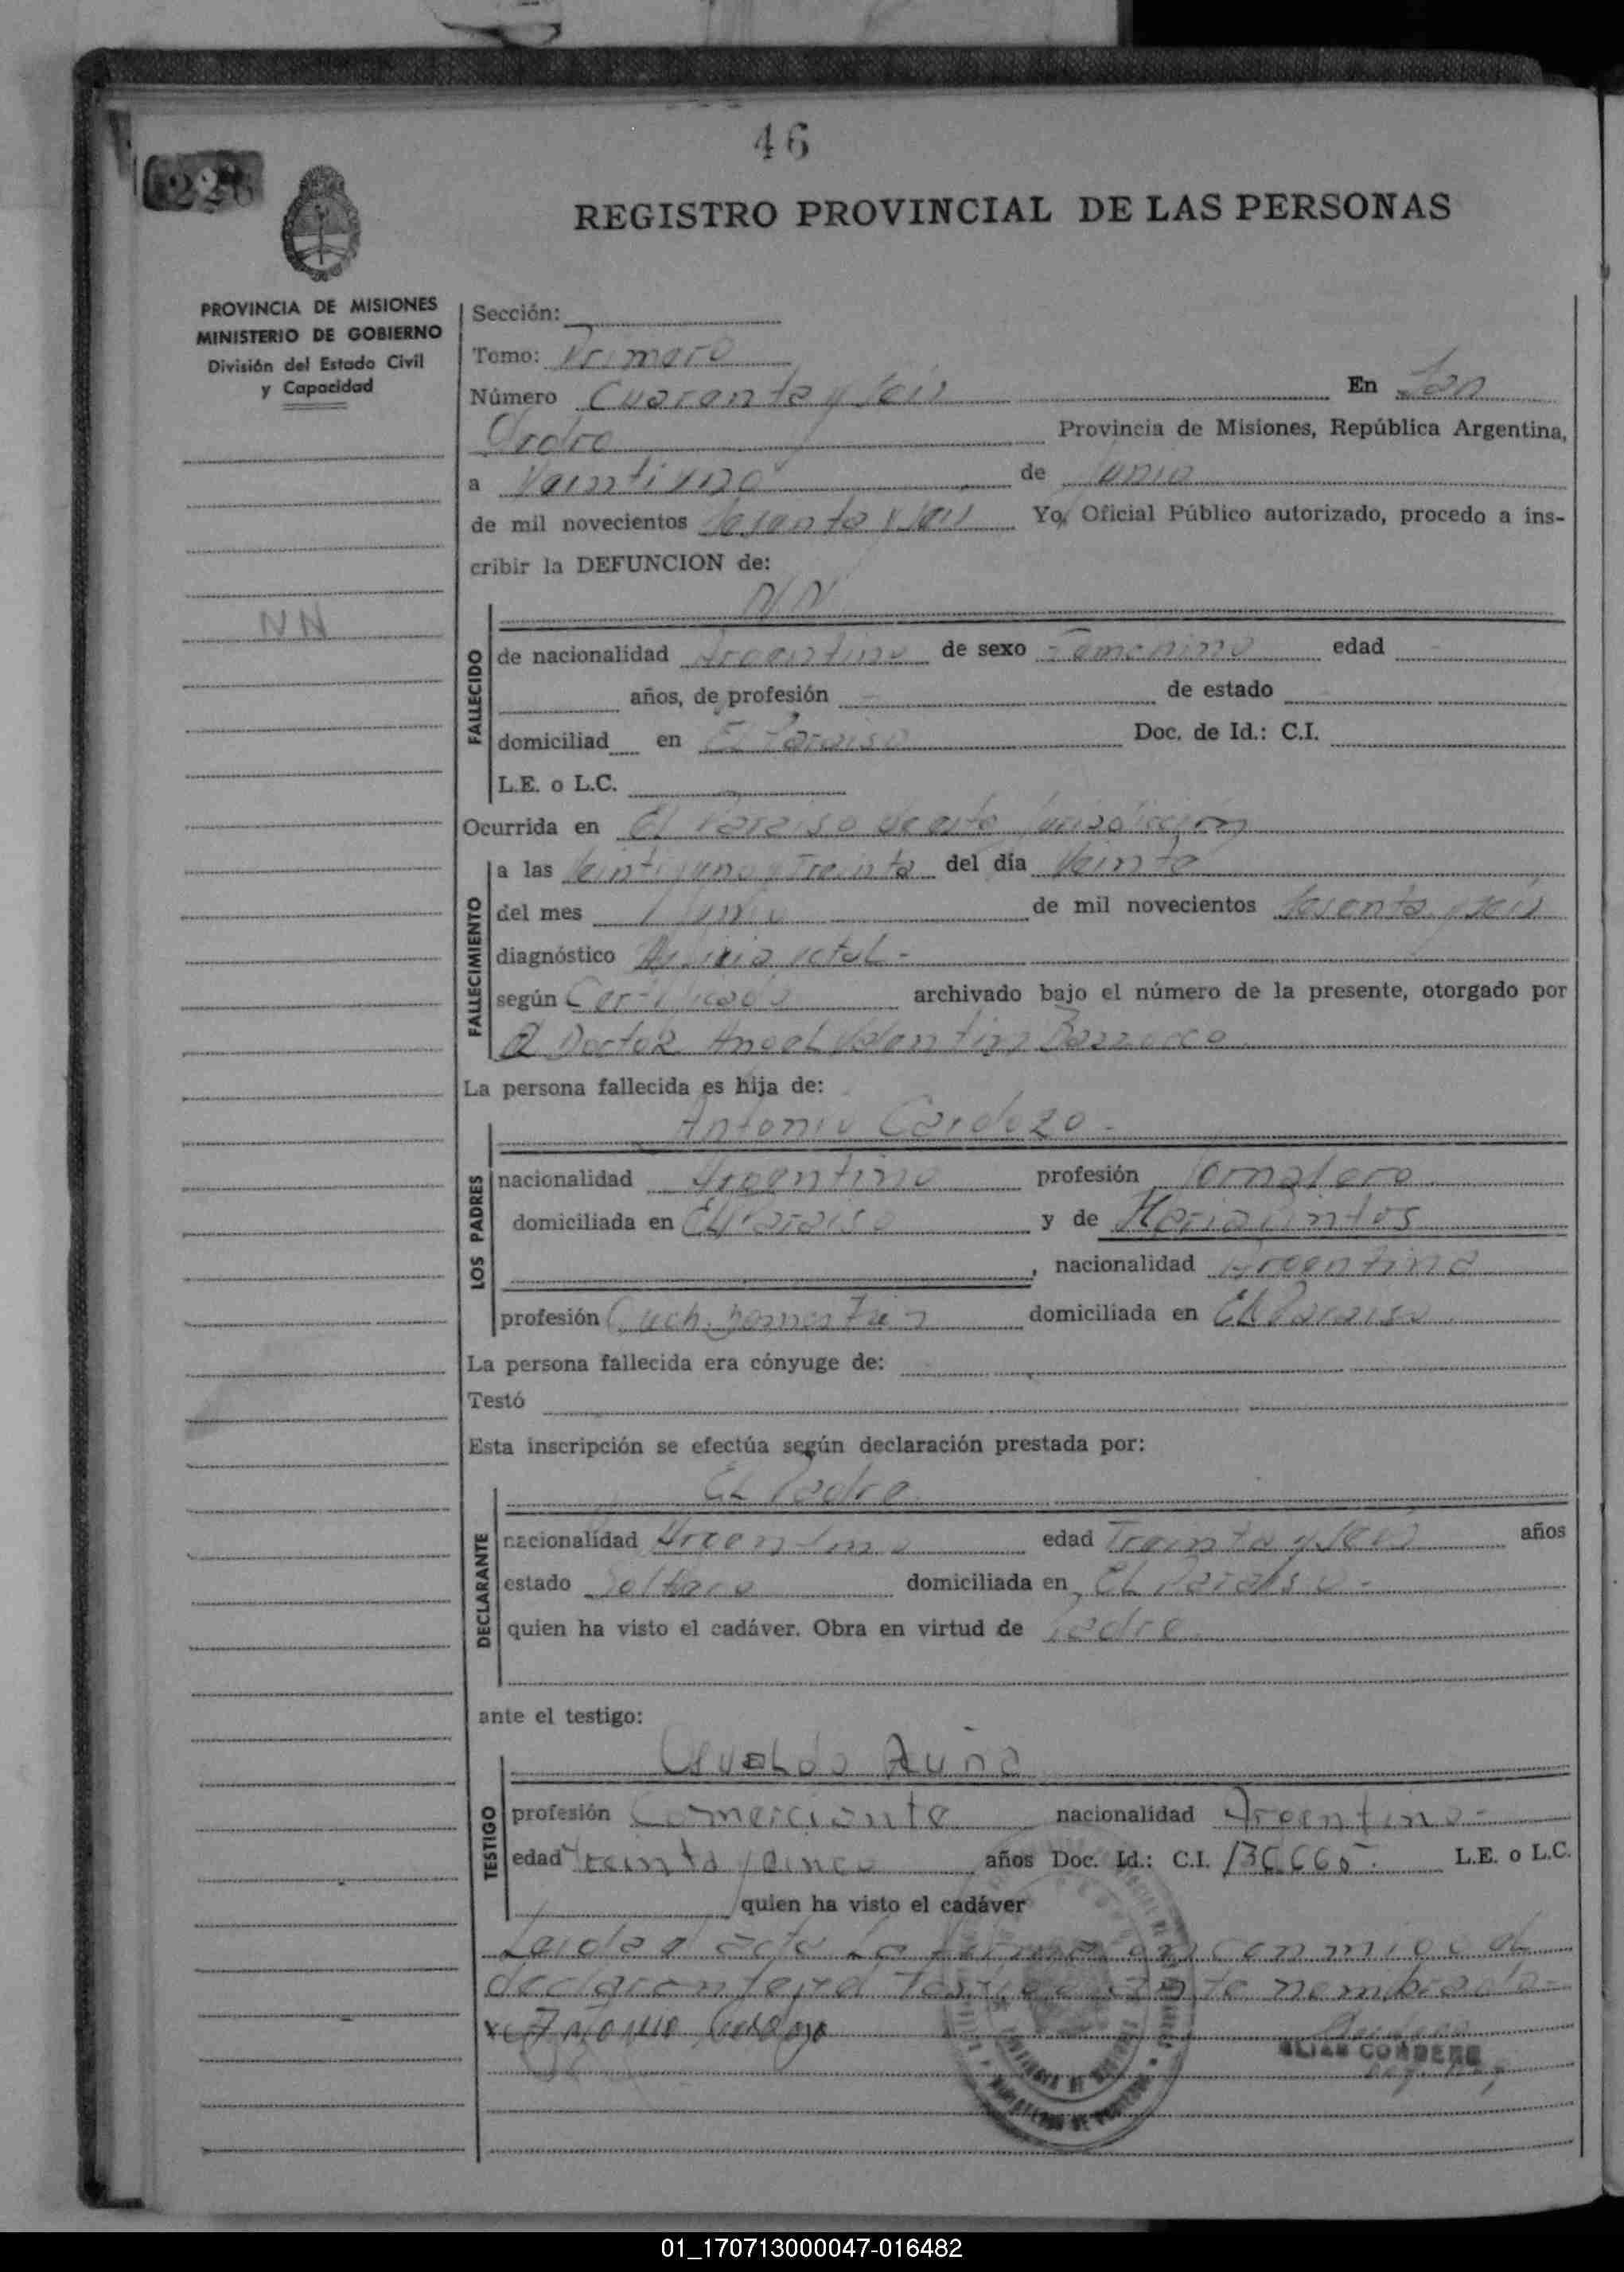 46
REGISTRO PROVINCIAL DE LAS PERSONAS
PROVINCIA DE MISIONES
MINISTERIO DE GOBIERNO
División del Estado Civil
y Capacidad
NN
Sección:
Tomo: Primero
Número Cuarenta y seis En San
Pedro Provincia de Misiones, República Argentina,
a Veintiuno de Junio
de mil novecientos sesenta y seis Yo, Oficial Público autorizado, procedo a ins-
cribir la DEFUNCION de:
NN
FALLECIDO
de nacionalidad Argentina de sexo Femenino edad
años, de profesión de estado
domiciliad en El Paraiso Doc. de Id.: C.I.
L.E. o L.C.
Ocurrida en El Paraiso de esta Jurisdicción
FALLECIMIENTO
a las Veintiuna y Treinta del día Veinte
del mes Junio de mil novecientos sesenta y seis
diagnóstico Asfixia fetal -
según Certificado archivado bajo el número de la presente, otorgado por
el Doctor Angel Valentin
La persona fallecida es hija de:
Antonio Cardozo -
LOS PADRES
nacionalidad Argentino profesión Jornalero
domiciliada en El Paraiso y de Maria
, nacionalidad Argentina
profesión domiciliada en El Paraiso
La persona fallecida era cónyuge de:
Testó
Esta inscripción se efectúa según declaración prestada por:
El Padre
DECLARANTE
nacionalidad Argentino edad Treinta y seis años
estado Soltero domiciliada en El Paraiso -
quien ha visto el cadáver. Obra en virtud de Padre
ante el testigo:
Osvaldo
TESTIGO
profesión Comerciante nacionalidad Argentino -
edad Treinta y cinco años Doc. Id.: C.I. L.E. o L.C.
quien ha visto el cadáver
Leida el acta La firman conmigo el
declarante y el testigo ante nombrado -
Antonio Cardozo
01_170713000047-016482